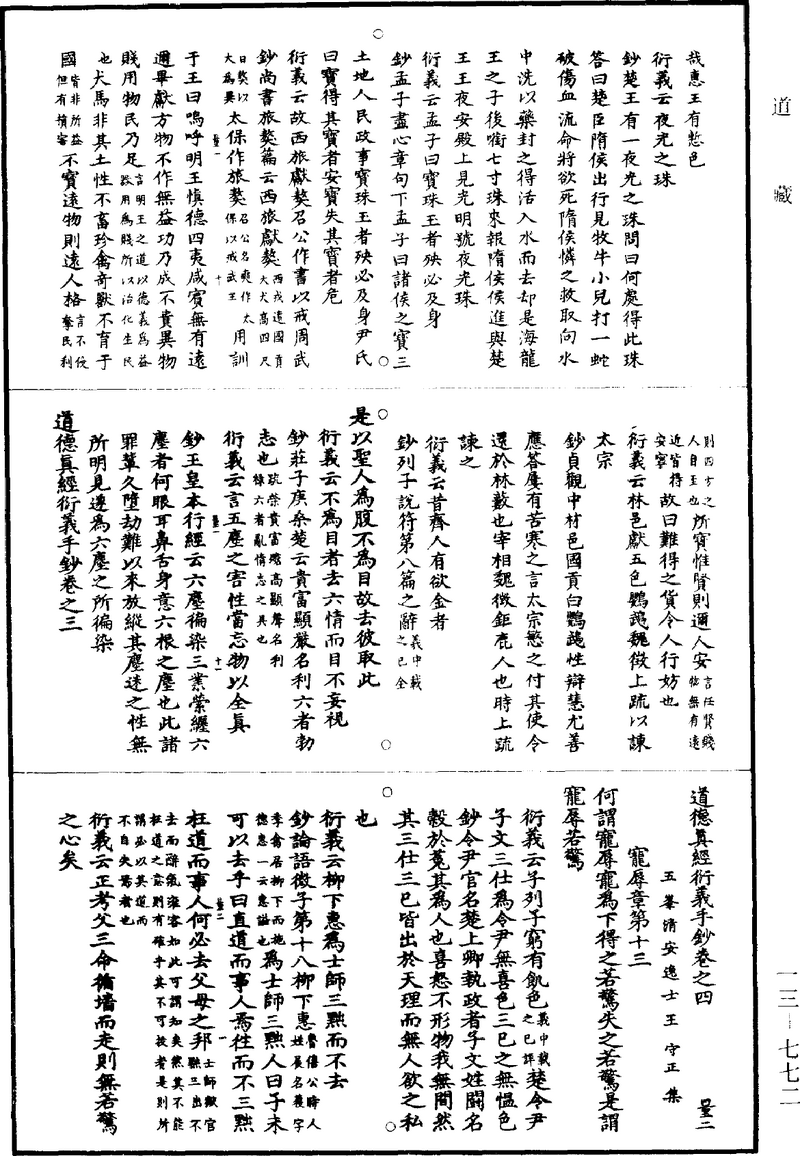 道藏
哉惠王有慙色
衍義云夜光之珠
鈔楚王有一夜光之珠問曰何處得此珠
答曰楚臣隋侯出行見牧牛小兒打一蛇
破傷血流命將欲死隋侯憐之救取向水
中洗以藥封之得活入水而去却是海龍
王之子後啣七寸珠來報隋侯侯進與楚
王王夜安殿上見光明號夜光珠
衍義云孟子曰寶珠玉者殃必及身
鈔孟子盡心章句下孟子曰諸侯之寶三
土地人民政事寶珠玉者殃必及身尹氏
曰寶得其寶者安寶失其寶者危
衍義云故西旅獻獒召公作書以戒周武
鈔尚書旅獒篇云西旅獻獒西戎遠國貢大犬高四尺
曰獒以大為異太保作旅獒召公名奭作太保以戒武王用訓
于王曰嗚呼明王慎德四夷咸賓無有遠
邇畢獻方物不作無益功乃成不貴異物
賤用物民乃足言明王之道以德義為益器用為賤所以治化生民
也犬馬非其土性不畜珍禽奇獸不育于
國皆非所益但有損害不寶遠物則遠人格言不侵奪民利
則四方之人自至也所寶惟賢則邇人安言任賢賤佞無有遠
近皆得安寧故曰難得之貨令人行妨也
衍義云林邑獻五色鸚鵡魏徵上疏以諫
太宗
鈔貞觀中林邑國貢白鸚鵡性辯慧尤善
應答屢有苦寒之言太宗慜之付其使令
還於林藪也宰相魏徵鉅鹿人也時上疏
諫之
衍義云昔齊人有欲金者
鈔列子說符第八篇之辭義中載之已全
是以聖人為腹不為目故去彼取此
衍義云不為目者去六情而目不妄視
鈔莊子庚桑楚云貴富顯嚴名利六者勃
志也疏榮貴富贍高顯聲名利祿六者亂情志之具也
衍義云言五塵之害性當忘物以全真
鈔玉皇本行經云六塵徧染三業縈纏六
塵者何眼耳鼻舌身意六根之塵也此諸
罪輩久墮劫難以來放縱其塵迷之性無
所明見邊為六塵之所徧染
道德真經衍義手鈔卷之三
道德真經衍義手鈔卷之四
五峯清安逸士王守正集
寵辱章第十三
何謂寵辱寵為下得之若驚失之若驚是謂
寵辱若驚
衍義云子列子窮有飢色義中載之已詳楚令尹
子文三仕為令尹無喜色三已之無慍色
鈔令尹官名楚上卿執政者子文姓鬭名
穀於菟其為人也喜怒不形物我無間然
其三仕三已皆出於天理而無人欲之私
也
衍義云柳下惠為士師三黜而不去
鈔論語微子第十八柳下惠魯僖公時人姓展名獲字
季禽居柳下而施德惠一云惠謚也為士師三黜人曰子未
可以去乎曰直道而事人焉往而不三黜
枉道而事人何必去父母之邦士師獄官黜三出不
去而辭氣雍容如此可謂知矣然其不能枉道之意則有確乎其不可拔者是則所
謂必以其道而不自失焉者也
衍義云正考父三命循墻而走則無若驚
之心矣
一三－七七二